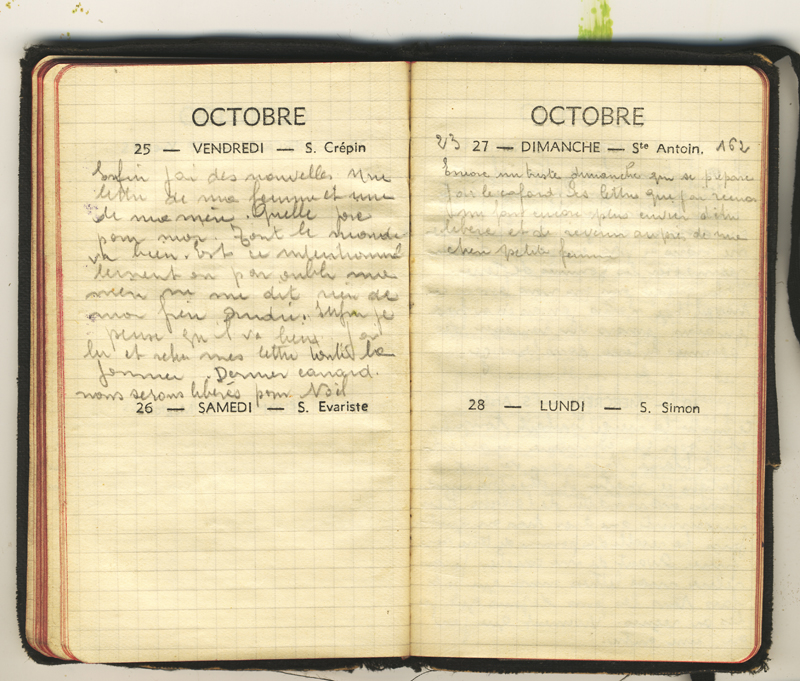 OCTOBRE
25 — VENDREDI — S. Crépin
Enfin j'ai des nouvelles une
lettre de ma femme et une
de ma mère. Quelle joie
pour moi. Tout le monde
va bien. Est ce intentionnel
lement ou par oubli ma
mère ne me dit rien de
mon frère André. Enfin je
pense qu'il va bien. J'ai
lu et relu mes lettre toute la
journée. Dernier canard.
nous serons libérés pour Noël
26 — SAMEDI — S. Evariste
OCTOBRE
23 27 — DIMANCHE — Ste Antoin. 162
Encore un triste dimanche qui se prépare
J'ai le cafard. les lettre que j'ai reçu
font encore plus envier d'être
libéré et de revenir auprès de ma
chère petite femme
28 — LUNDI — S. Simon